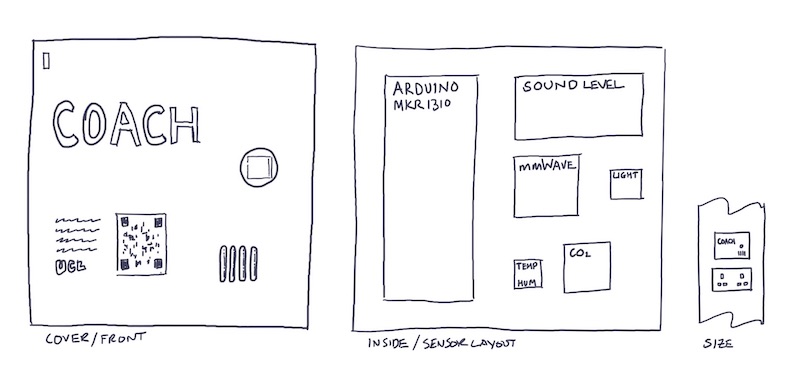 COACH
UCL
COVER/FRONT
ARDUINO
MKR1310
SOUND LEVEL
mmWAVE
LIGHT
TEMP
HUM
CO2
INSIDE / SENSOR LAYOUT
COACH
SIZE